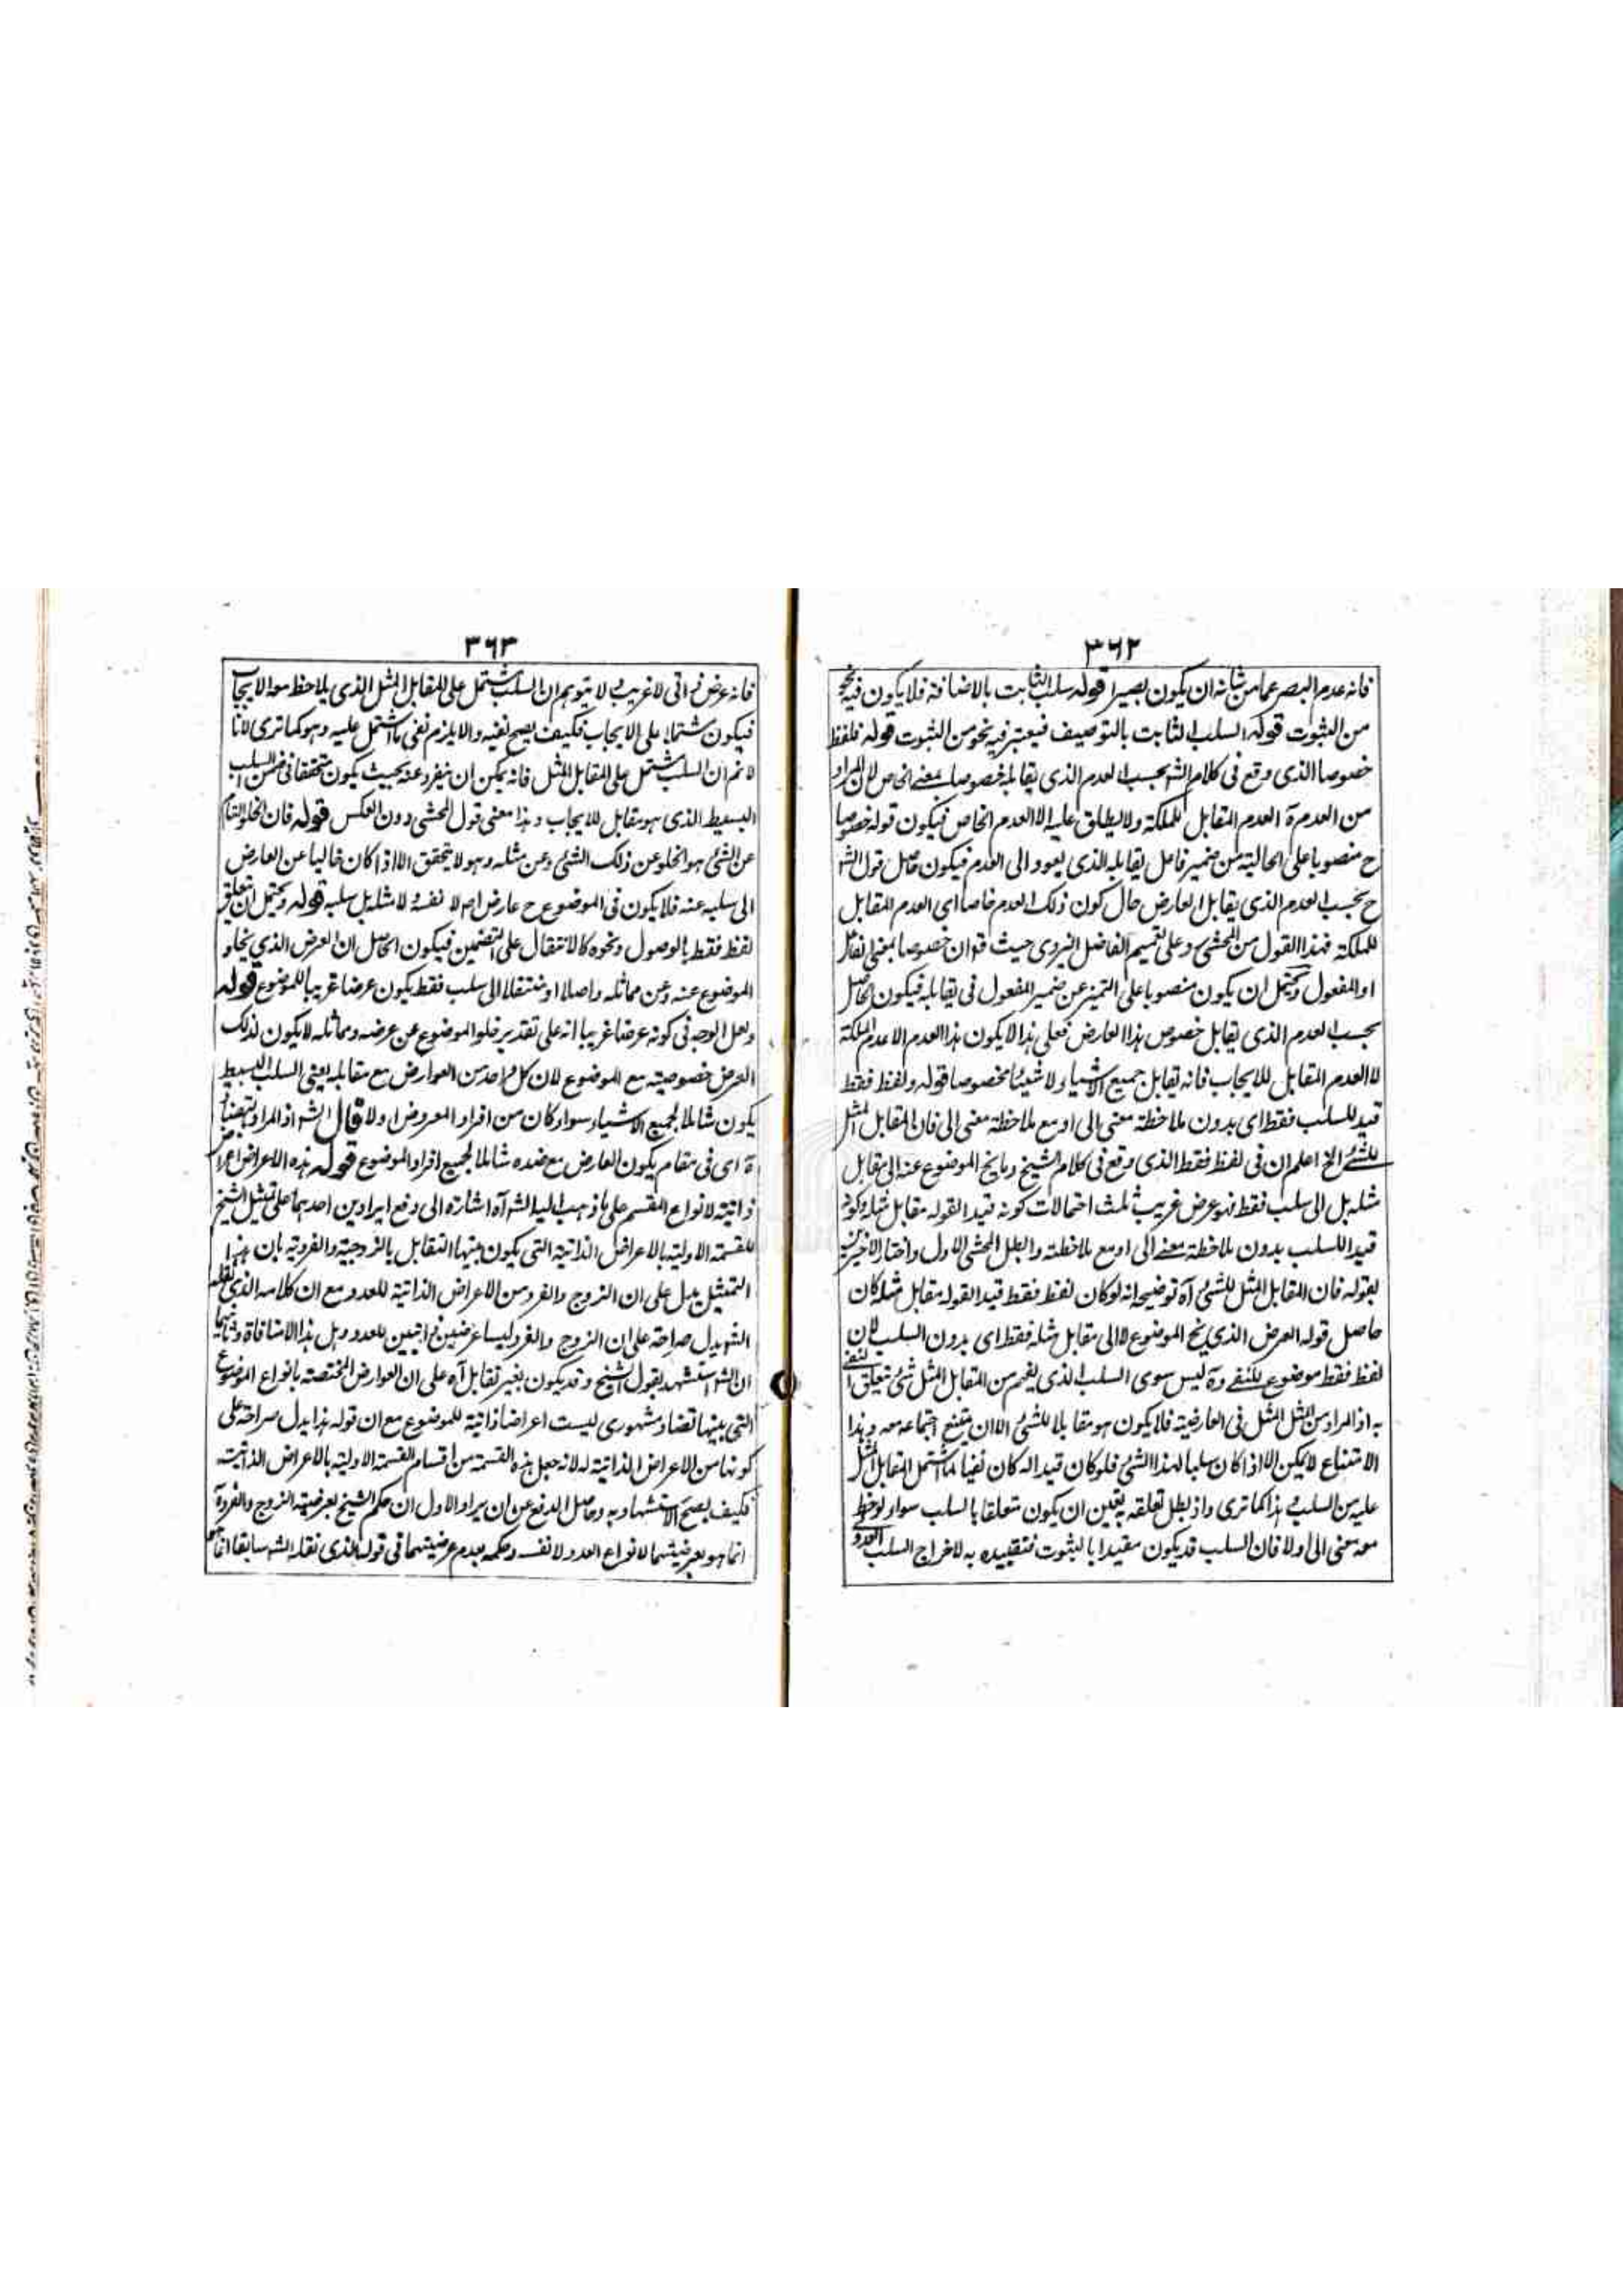 ٣٦٢
فانه عدم البصر عما من شانه ان يكون بصيرا قوله سلب الثابت بالاضافة فلا يكون فيه نحو
من الثبوت قوله السلب الثابت بالتوصيف فيعتبر فيه نحو من الثبوت قوله فلفظ
خصوصا الذى وقع فى كلام الشه بحسب العدم الذى يقابله خصوصا بمعنى الخاص لان المراد
من العدم ة العدم المقابل للملكة ولا يطلق عليه الا العدم الخاص فيكون قوله خصوصا
ح منصوبا على الحالية من ضمير فاعل يقابله الذى يعود الى العدم فيكون حاصل قول الشه
ح بحسب العدم الذى يقابل العارض حال كون ذلك العدم خاصا اى العدم المقابل
للملكة فهذا القول من المحشى وعلى تقسيم الفاضل اليزدى حيث قوان خصوصا بمعنى الفاعل
او المفعول ويحتمل ان يكون منصوبا على التميز عن ضمير المفعول فى يقابله فيكون الحاصل
بحسب العدم الذى يقابل خصوص هذا العارض فعلى هذا لا يكون هذا العدم الا عدم الملكة
لا العدم المقابل للايجاب فانه يقابل جميع الاشياء ولا شيئا مخصوصا قوله ولفظ فقط
قيد للسلب فقط اى بدون ملاحظة معنى الى او مع ملاحظة معنى الى فان المقابل المثل
للشئ الخ اعلم ان فى لفظ فقط الذى وقع فى كلام الشيخ وما يخ الموضوع عنه الى مقابل
مثله بل الى سلب فقط فهو عرض غريب ثلث احتمالات كونه قيدا لقوله مقابل مثله وكونه
قيدا للسلب بدون ملاحظة معنى الى او مع ملاحظته وابطل المحشى الاول واختار الاخيرين
بقوله فان المقابل المثل للشئ آه توضيحه انه لو كان لفظ فقط قيدا لقوله مقابل مثله كان
حاصل قوله العرض الذى يخ الموضوع لا الى مقابل مثله فقط اى بدون السلب لان
لفظ فقط موضوع للنفى وة ليس سوى السلب الذى يفهم من المقابل المثل شئ يتعلق النفى
به اذ المراد من المثل المثل فى العارضية فلا يكون هو مقابلا للشئ الا ان يمتنع اجتماعه معه وهذا
الامتناع لا يمكن الا اذا كان سلبا لهذا الشئ فلو كان قيدا له كان نفيا لما اشتمل المقابل المثل
عليه من السلب هذا كما ترى واذ بطل تعلقه به تعين ان يكون متعلقا بالسلب سواء لوحظ
معه معنى الى اولا فان السلب قد يكون مقيدا بالثبوت فتقييده به لاخراج السلب العدولى
٣٦٣
فانه عرض ذاتى لا غريب لا يتوهم ان السلب مشتمل على المقابل المثل الذى يلاحظ معه الايجاب
فيكون مشتملا على الايجاب فكيف يصح نفيه والا يلزم نفى ما اشتمل عليه وهو كما ترى لانا
لا نم ان السلب مشتمل على المقابل المثل فانه يمكن ان ينفرد عنه بحيث يكون متحققا فى ضمن السلب
البسيط الذى هو مقابل للايجاب وهذا معنى قول المحشى دون العكس قوله فان الخلو التام
عن الشئ هو الخلو عن ذلك الشئ وعن مثله وهو لا يتحقق الا اذا كان خاليا عن العارض
الى سلبه عنه فلا يكون فى الموضوع ح عارض اصلا لا نفسه ولا مثله بل سلبه قوله ويحتمل ان يتعلق
لفظ فقط بالوصول ونحوه كالانتقال على التضمين فيكون الحاصل ان العرض الذى يخلو
الموضوع عنه وعن مماثله واصلا او منتقلا الى سلب فقط يكون عرضا غريبا للموضوع قوله
ولعل الوجه فى كونه عرضا غريبا انه على تقدير خلو الموضوع عن عرضه ومماثله لا يكون لذلك
العرض خصوصيته مع الموضوع لان كل واحد من العوارض مع مقابله يعنى السلب البسيط
يكون شاملا لجميع الاشياء سواء كان من افراد المعروض اولا قال الشه اذ المراد بتجهنا
ة اى فى مقام يكون العارض مع ضده شاملا لجميع افراد الموضوع قوله هذه الاعراض اعراض
ذاتية لانواع المقسم على ما ذهب اليه الشه آه اشارة الى دفع ايرادين احدهما على تمثيل الشيخ
للقسمة الاولية بالاعراض الذاتية التى يكون بينها التقابل بالزوجية والفردية بان هذا
التمثيل يدل على ان الزوج والفرد من الاعراض الذاتية للعدد مع ان كلامه الذى نقله
الشه يدل صراحة على ان الزوج والفرد ليسا عرضين ذاتيين للعدد وهل هذا الا منافاة وثانيهما
ان الشه استشهد بقول الشيخ وقد يكون بغير تقابل آه على ان العوارض المختصة بانواع الموضوع
التى بينها تضاد مشهورى ليست اعراضا ذاتية للموضوع مع ان قوله هذا يدل صراحة على
كونها من الاعراض الذاتية له لانه جعل هذه القسمة من اقسام القسمة الاولية بالاعراض الذاتية
فكيف يصح الاستشهاد به وحاصل الدفع عن الايراد الاول ان حكم الشيخ بعرضية الزوج والفردة
انما هو بعرضيتهما لانواع العدد لا نفسه وحكمه بعدم عرضيتهما فى قوله الذى نقله الشه سابقا انما هو